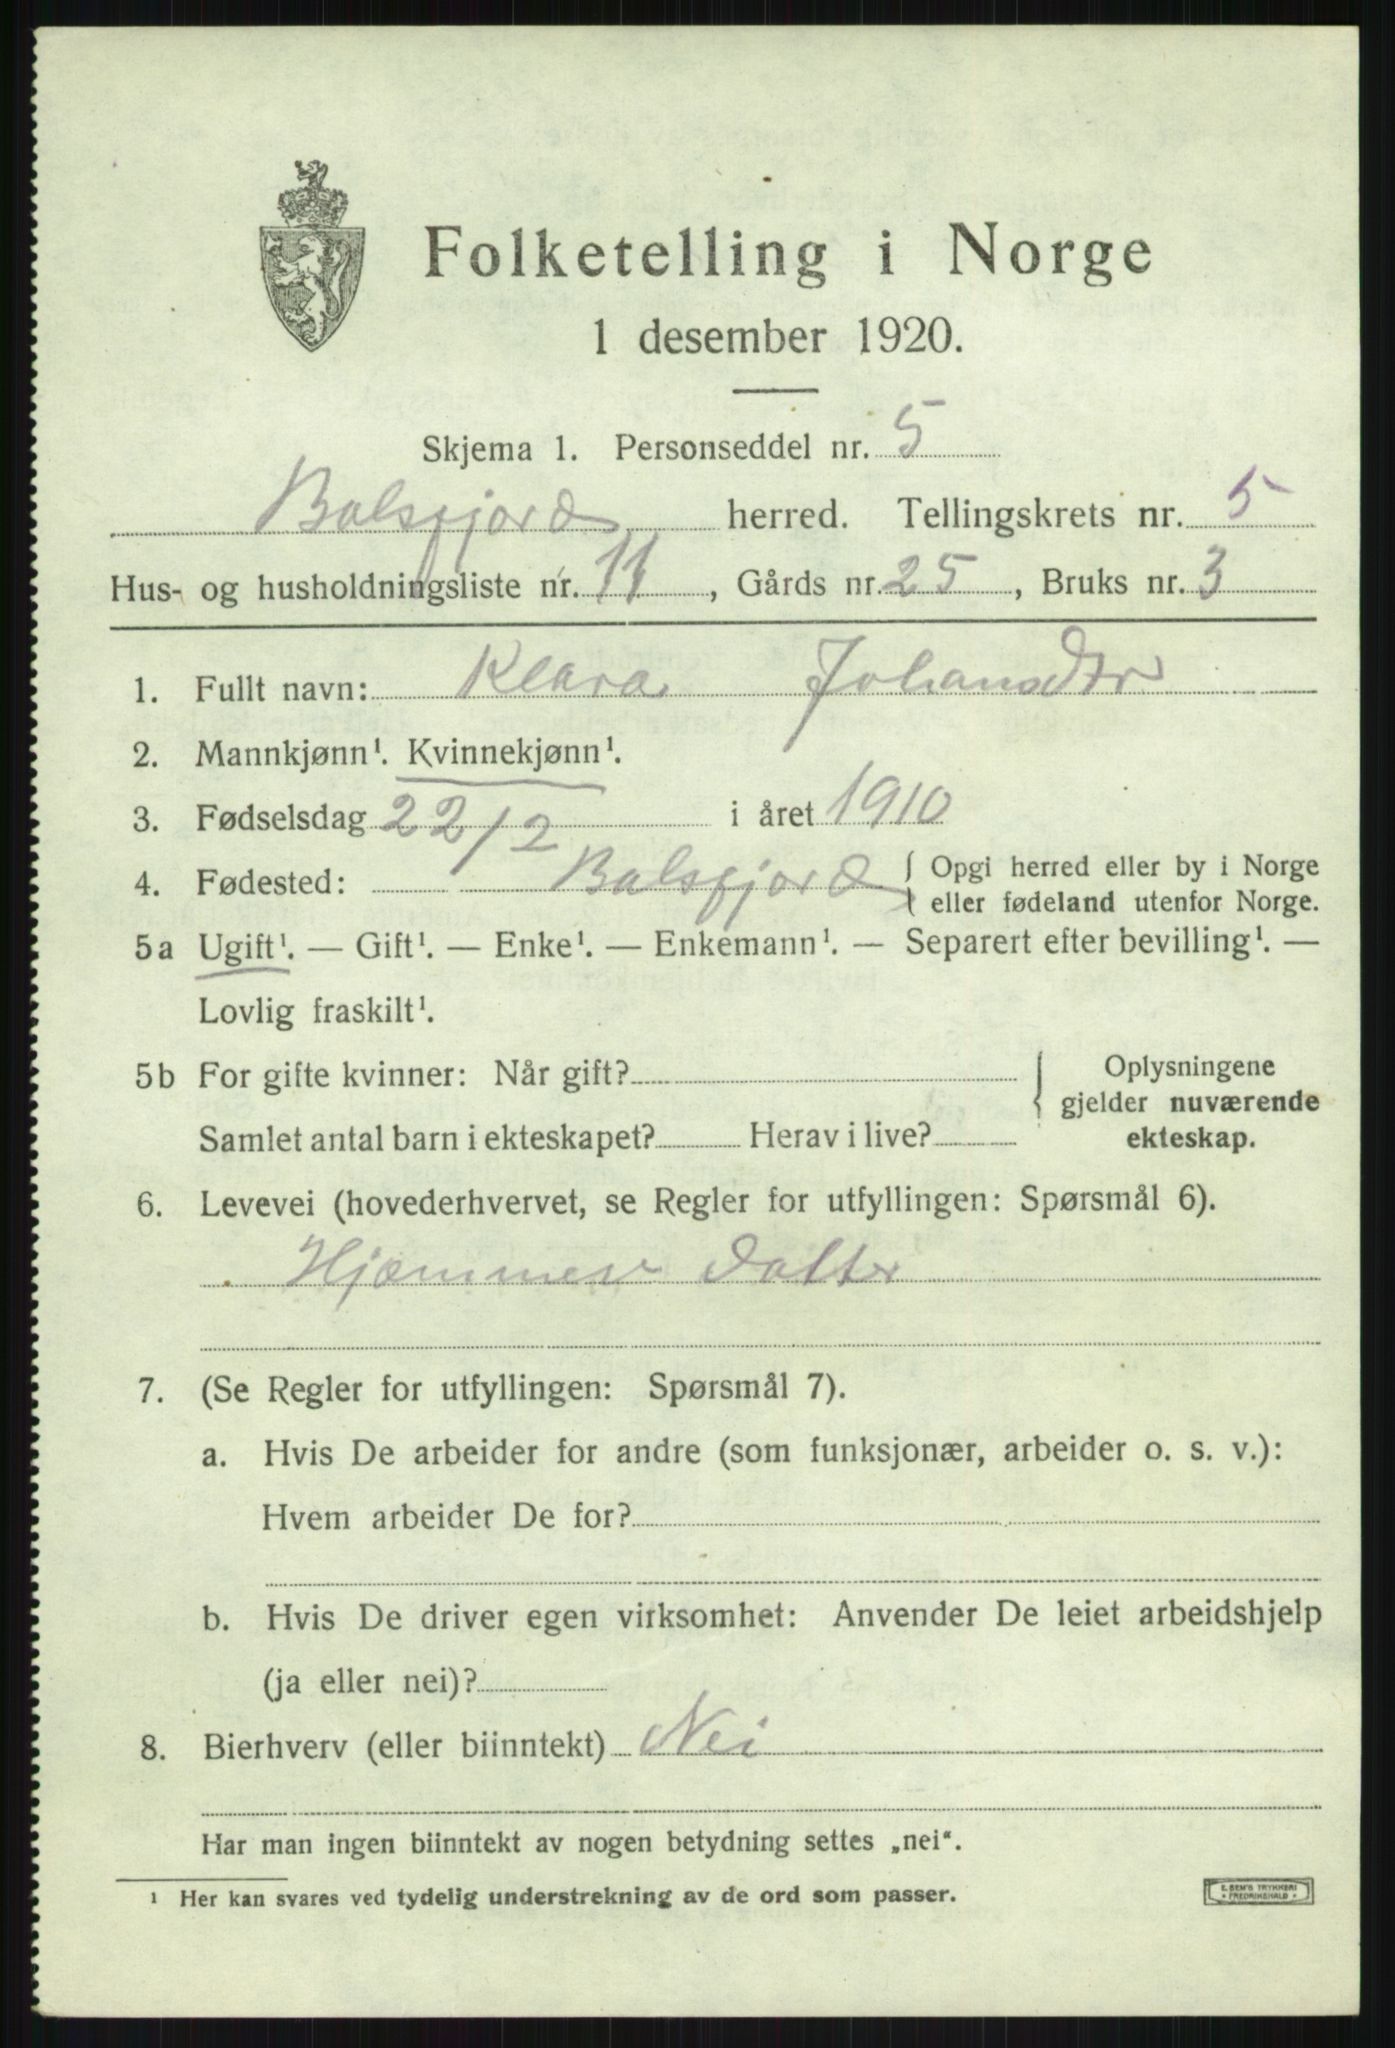 Folketelling i Norge
1 desember 1920.
Skjema 1. Personseddel nr. 5
Balsfjord herred. Tellingskrets nr. 5
Hus- og husholdningsliste nr. 11, Gårds nr. 25, Bruks nr. 3
1. Fullt navn: Klara Johansdtr
2. Mannkjønn¹. Kvinnekjønn¹.
3. Fødselsdag 22/2 i året 1910
4. Fødested: Balsfjord { Opgi herred eller by i Norge
eller fødeland utenfor Norge.
5a Ugift¹. — Gift¹. — Enke¹. — Enkemann¹. — Separert efter bevilling¹. —
Lovlig fraskilt¹.
5b For gifte kvinner: Når gift? { Oplysningene
gjelder nuværende
Samlet antal barn i ekteskapet? Herav i live? ekteskap.
6. Levevei (hovederhvervet, se Regler for utfyllingen: Spørsmål 6).
Hjemmev datter
7. (Se Regler for utfyllingen: Spørsmål 7).
a. Hvis De arbeider for andre (som funksjonær, arbeider o. s. v.):
Hvem arbeider De for?
b. Hvis De driver egen virksomhet: Anvender De leiet arbeidshjelp
(ja eller nei)?
8. Bierhverv (eller biinntekt) Nei
Har man ingen biinntekt av nogen betydning settes „nei“.
¹ Her kan svares ved tydelig understrekning av de ord som passer.
E. SEM'S TRYKKERI
• FREDRIKSHALD •